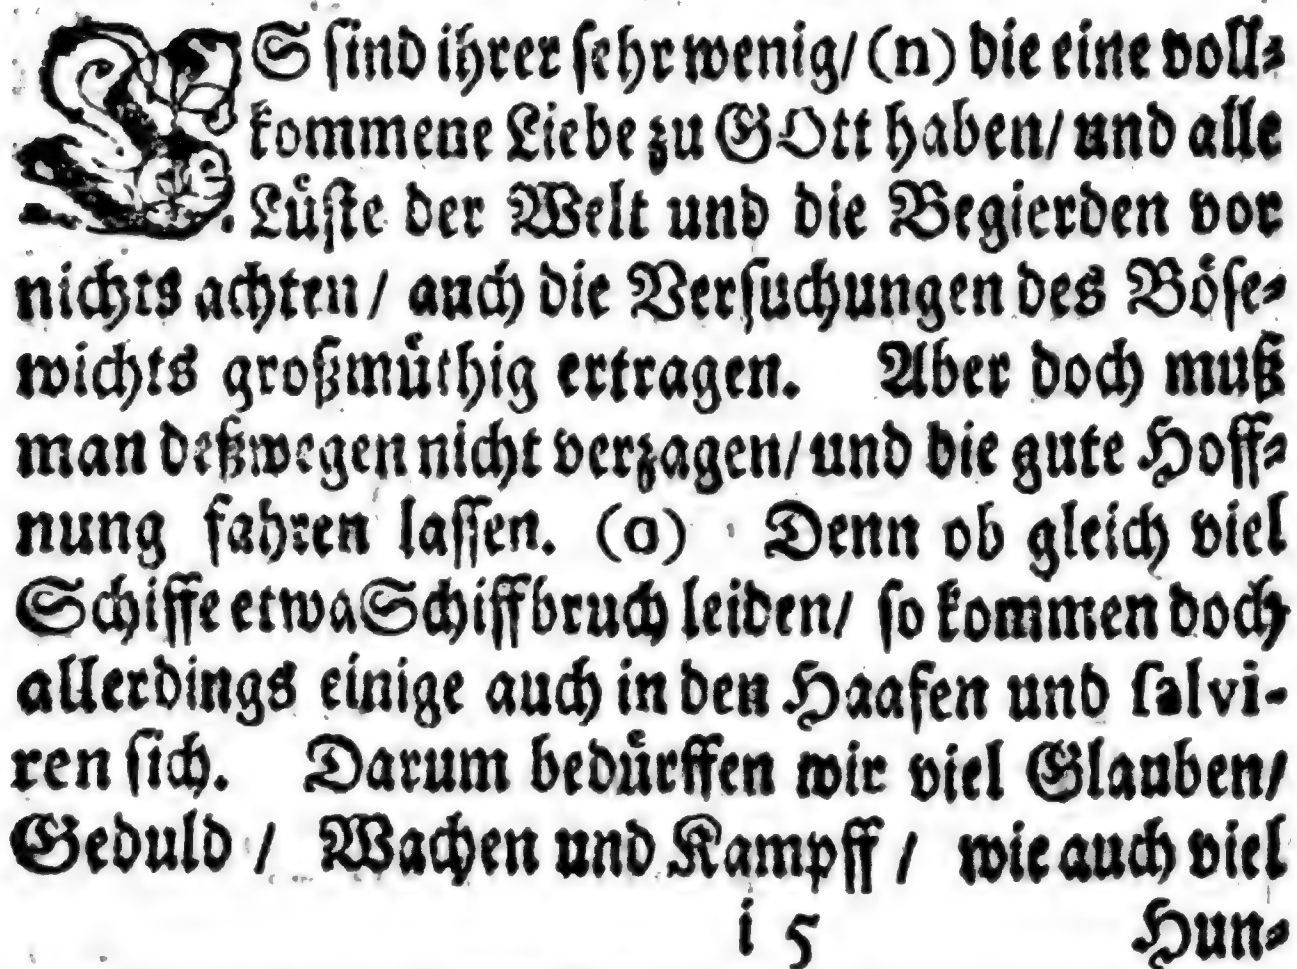 ES ſind ihrer ſehr wenig/ (n) die eine voll⸗
kommene Liebe zu GOtt haben/ und alle
Luͤſte der Welt und die Begierden vor
nichts achten/ auch die Verſuchungen des Boͤſe⸗
wichts großmuͤthig ertragen. Aber doch muß
man deßwegen nicht verzagen/ und die gute Hoff⸗
nung fahren laſſen. (o) Denn ob gleich viel
Schiffe etwa Schiffbruch leiden/ ſo kommen doch
allerdings einige auch in den Haafen und ſalvi-
ren ſich. Darum beduͤrffen wir viel Glauben/
Geduld / Wachen und Kampff / wie auch viel
i 5 Hun⸗